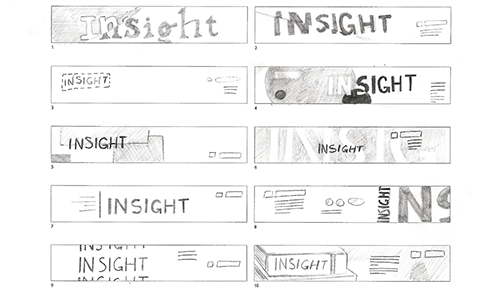 Insight
1
INSIGHT
2
INSIGHT
3
INSIGHT
4
INSIGHT
5
INSIGHT
INSIGHT
6
INSIGHT
7
INSIGHT
NS
8
INSIGHT
INSIGHT
INSIGHT
9
INSIGHT
10